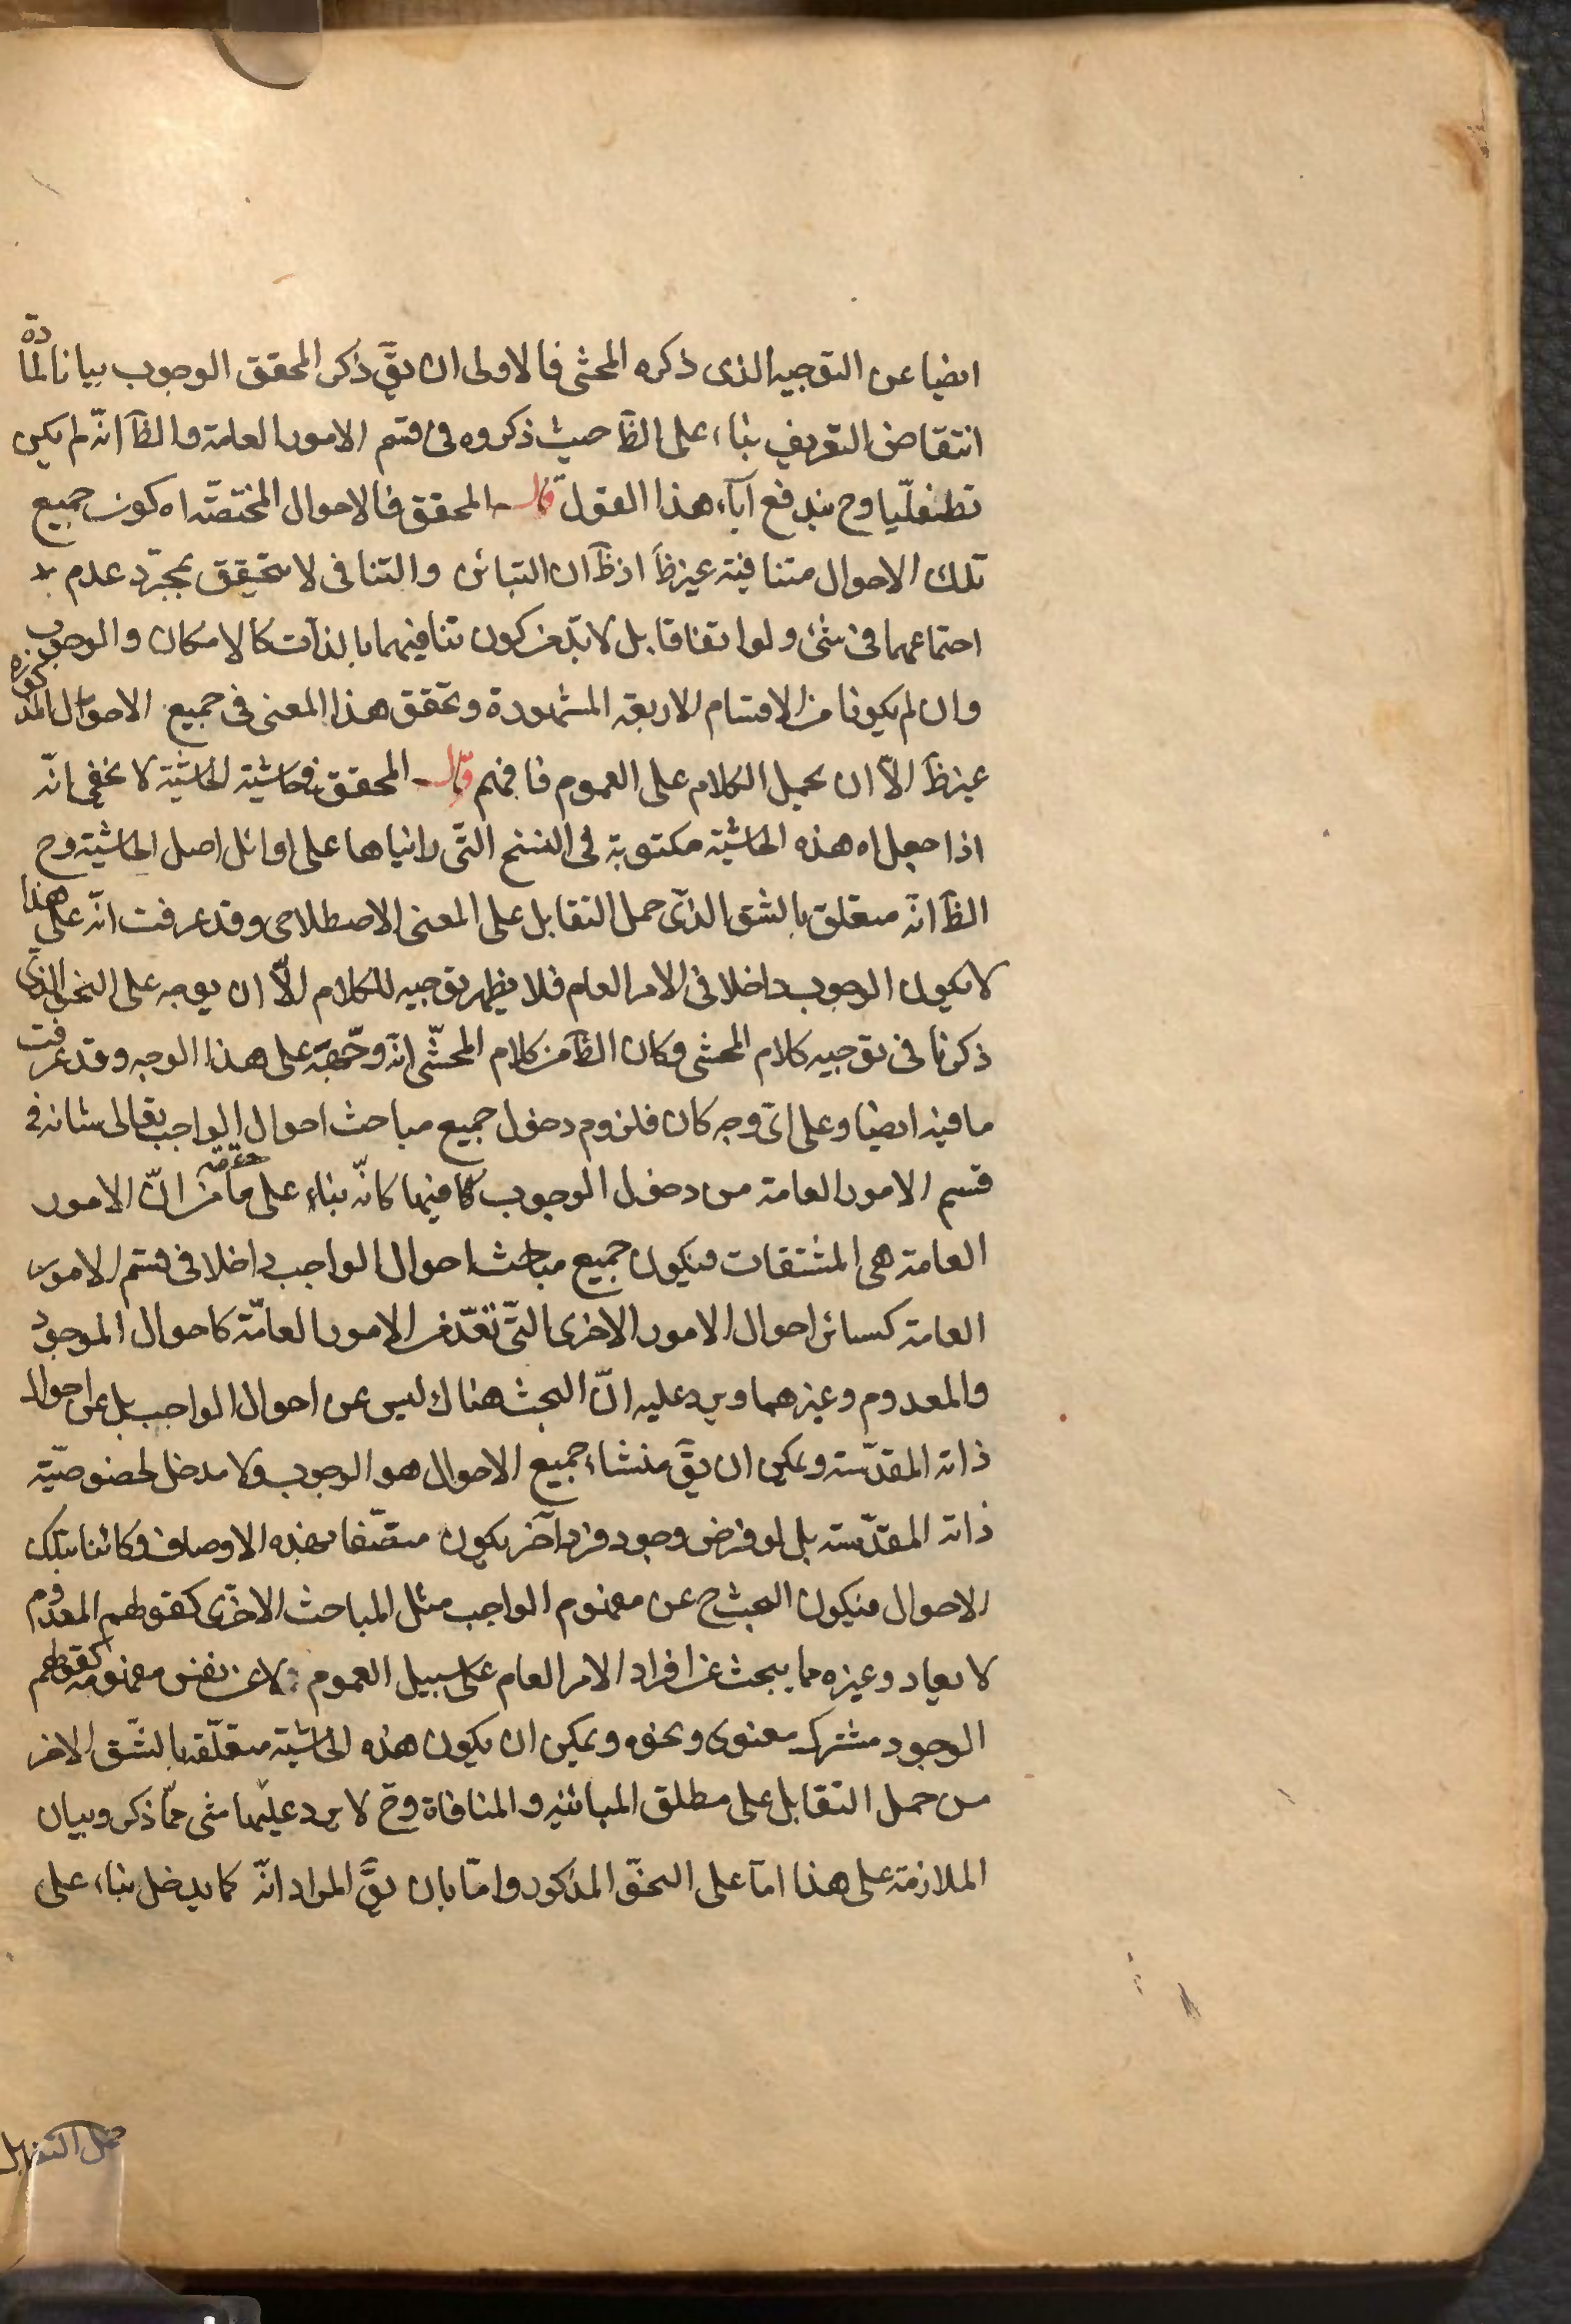 ايضا عن التوجيه الذى ذكره المحشى فالاولى ان يقَ ذكر المحقق الوجوب بيانا لمادة
انتقاض التعريف بناء على الظَ حيث ذكروه فى قسم الامور العامة والظَ انّه لم يكن
تطفلّيا وح يندفع آباء هذا القول قال المحقق فالاحوال المختصّة اه كون جميع
تلك الاحوال متنافية غير ظَ اذ ظَ ان التباين والتنافى لا يتحقق بمجرّد عدم
اجتماعهما فى شئ ولو اتفاقا بل لا بدّ من كون تنافيهما بالذات كالامكان والوجوب
وان لم يكونا من الاقسام الاربعة المشهورة وتحقق هذا المعنى فى جميع الاحوال المذكورة
غير ظَ الاّ ان يحمل الكلام على العموم فافهم قال المحقق فى حاشية الحاشية لا يخفى انّه
اذا جعل اه هذه الحاشية مكتوبة فى النسخ التى رايناها على اوائل اصل الحاشية وح
الظَ انّه متعلق بالشق الذى حمل التقابل على المعنى الاصطلاحى وقد عرفت انّه على هذا
لا يكون الوجوب داخلا فى الامر العام فلا يظهر توجيه للكلام الاّ ان يوجه على النحو الذى
ذكرنا فى توجيه كلام المحشى وكان الظَ من كلام المحشّى انّه وجّهه على هذا الوجه وقد عرفت
ما فيه ايضا وعلى اىّ وجه كان فلزوم دخول جميع مباحث احوال الواجب تعالى شانه فى
قسم الامور العامة من دخول الوجوب فيها كانّه بناء على ما من انّ الامور
العامة هى المشتقات فيكون جميع مباحث احوال الواجب داخلا فى قسم الامور
العامة كسائر احوال الامور الاخرى التّى تعدّ من الامور العامّة كاحوال الموجود
والمعدوم وغيرهما ويرد عليه انّ البحث هناك ليس عن احوال الواجب بل عن احوال
ذاته المقدّسة ويمكن ان يقَ منشاء جميع الاحوال هو الوجوب ولا مدخل لخصوصيّة
ذاته المقدّسة بل لو فرض وجود فرد آخر يكون متصّفا بهذه الاوصاف وكائنا بتلك
الاحوال فيكون البحث ح عن مفهوم الواجب مثل المباحث الاخرى كقولهم المعدوم
لا يعاد وغيره مما يبحث عن افراد الامر العام على سبيل العموم لا عن نفس مفهومه كقولهم
الوجود مشترك معنوى ونحوه ويمكن ان يكون هذه الحاشية متعلّقة بالشّق الاخر
من حمل التقابل على مطلق المباينة والمنافاة وح لا يرد عليها شى ممّا ذكر وبيان
الملازمة على هذا امّا على النحو المذكور وامّا بان يقَ المراد انّه كما يدخل بناء على
حمل التقابل